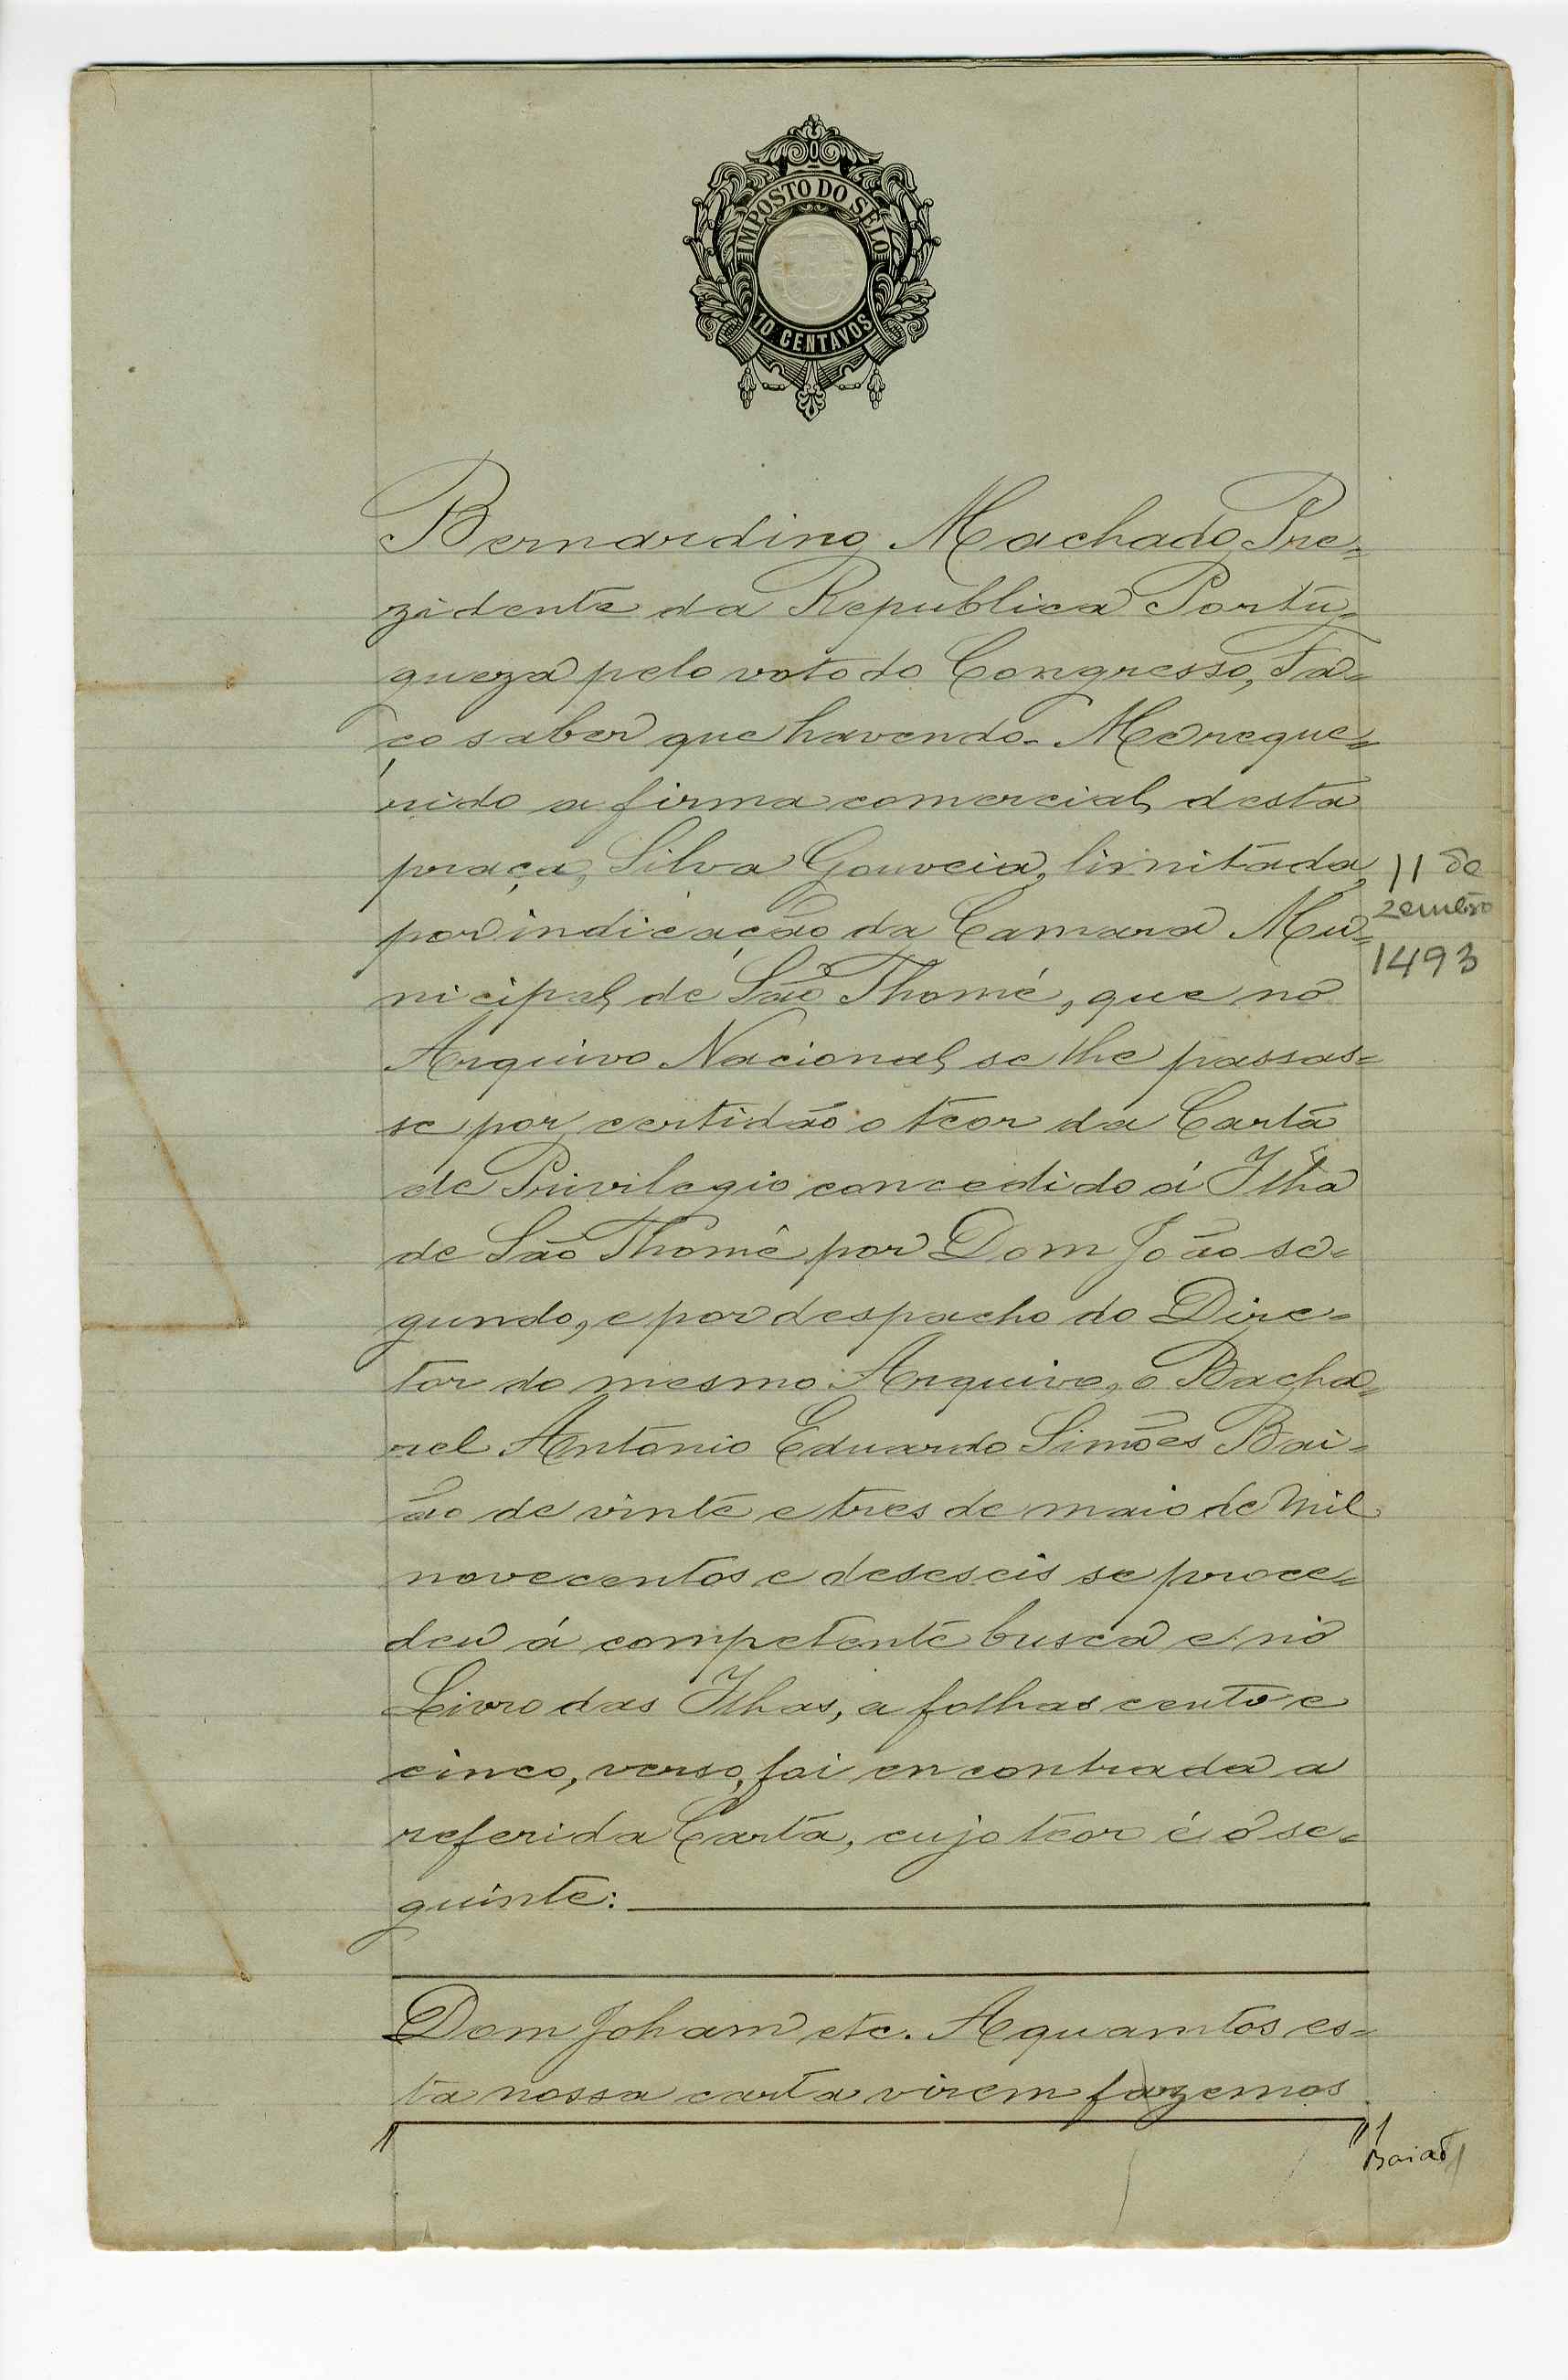 IMPOSTO DO SELO
10 CENTAVOS
Bernardino Machado Pre=
zidente da Republica Portu=
gueza pelo voto do Congresso, Fa=
ço saber que havendo-Me reque=
rido a firma comercial, desta
praça, Silva Gouveia, limitada,
por indicação da Camara Mu=
nicipal, de São Thomé, que no
Arquivo Nacional, se lhe passas=
se por certidão o teor da Carta
de Privilegio concedido á Ilha
de São Thomé por Dom João se=
gundo, e por despacho do Dire=
tor do mesmo Arquivo, o Bacha=
rel Antonio Eduardo Simões Bai=
ão de vinte e tres de maio de mil
novecentos e deseseis se proce=
deu á competente busca e no
Livro das Ilhas, a folhas cento e
cinco, verso, foi encontrada a
referida Carta, cujo teor é o se=
guinte:
Dom Joham etc. A quamtos es=
ta nossa carta virem fazemos
11 de
zembro
1493
Baião